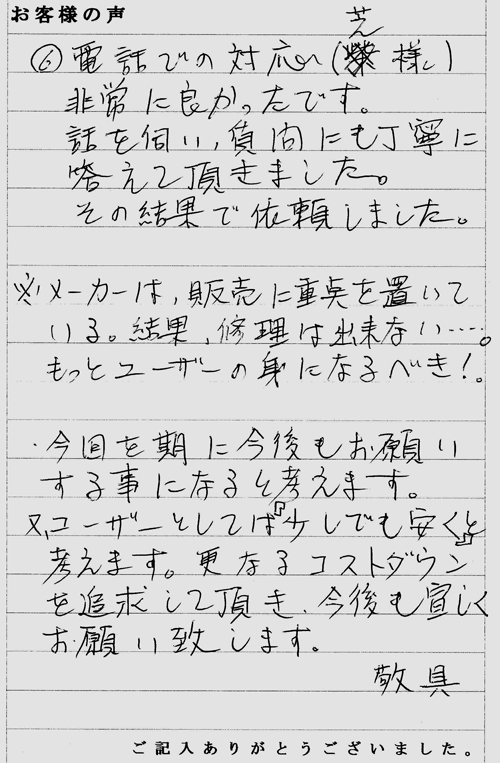 お客様の声
⑥電話での対応(芝様)
非常に良かったです。
話を伺い,質問にも丁寧に
答えて頂きました。
その結果で依頼しました。
※メーカーは,販売に重点を置いて
いる。結果,修理は出来ない……。
もっとユーザーの身になるべき!。
・今回を期に今後もお願い
する事になると考えます。
又,ユーザーとしては『少しでも安く』と
考えます。更なるコストダウン
を追求して頂き、今後も宜しく
お願い致します。
敬具
ご記入ありがとうございました。